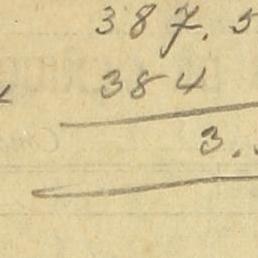 387.5
384
3.